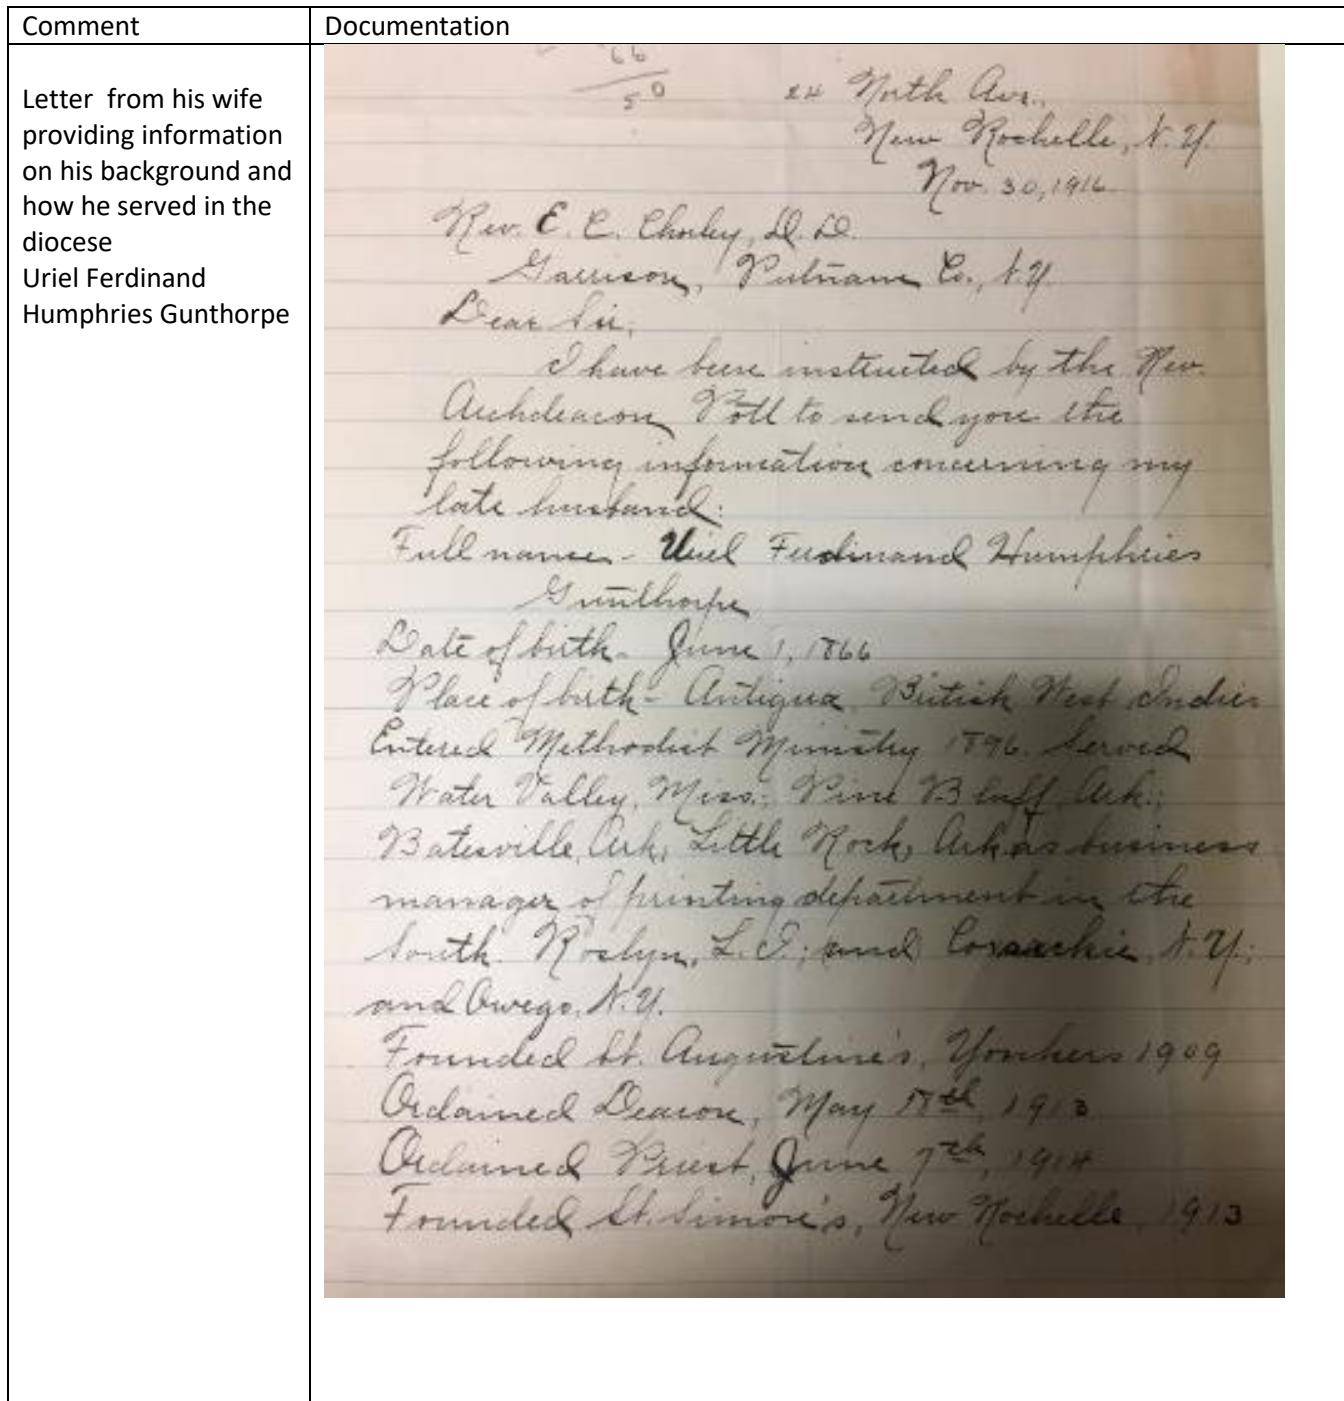 Comment
Documentation
Letter from his wife
providing information
on his background and
how he served in the
diocese
Uriel Ferdinand
Humphries Gunthorpe
66
50
24 North Ave.,
New Rochelle, N.Y.
Nov. 30, 1916
Rev. E. C. Chorley, D.D.
Garrison, Putnam Co., N.Y.
Dear Sir;
I have been instructed by the Rev.
Archdeacon Pott to send you the
following information concerning my
late husband:
Full name - Uriel Ferdinand Humphries
Gunthorpe
Date of birth - June 1, 1866
Place of birth - Antigua, British West Indies
Entered Methodist Ministry 1896. Served
Water Valley, Miss.; Pine Bluff, Ark.;
Batesville, Ark; Little Rock, Ark as business
manager of printing department in the
South. Roslyn, L.I.; and Coxsackie, N.Y.;
and Owego, N.Y.
Founded St. Augustine's, Yonkers 1909
Ordained Deacon, May 18th, 1913
Ordained Priest, June 7th, 1914
Founded St. Simon's, New Rochelle, 1913